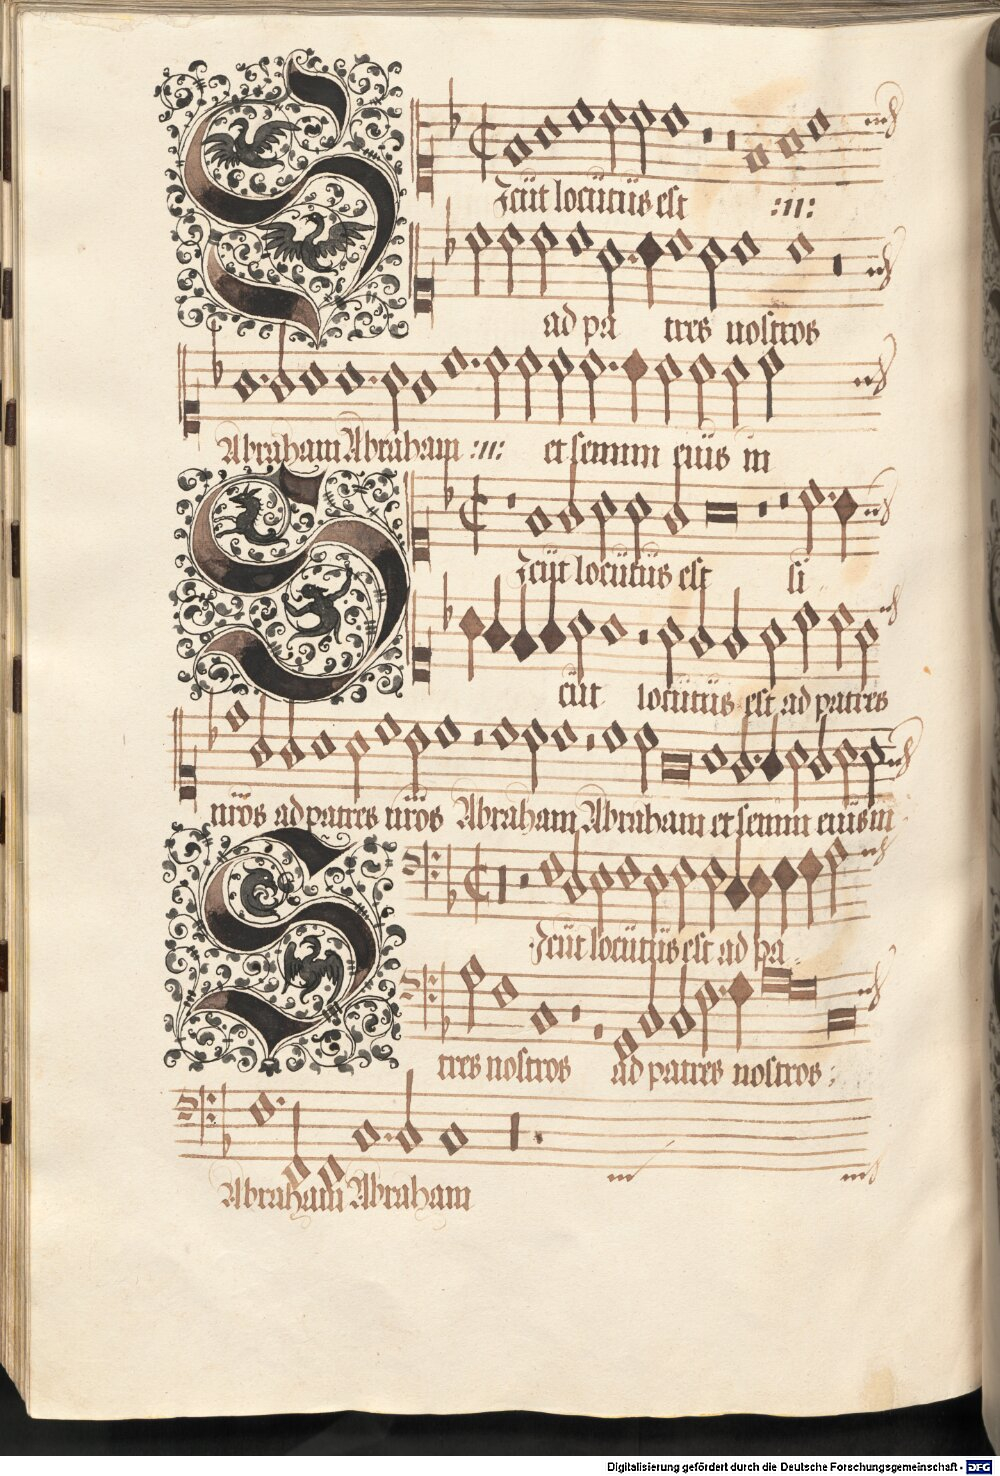 Sicüt locütüs est :ıı:
ad pa tres nostros
Abraham Abraham :ıı: et semini eiüs in
Sicüt locütüs est si
cüt locütüs est ad patres
nr̄os ad patres nr̄os Abraham Abraham et semini eiüs in
Sicüt locütüs est ad pa
tres nostros ad patres nostros :
Abraham Abraham
Digitalisierung gefördert durch die Deutsche Forschungsgemeinschaft - DFG